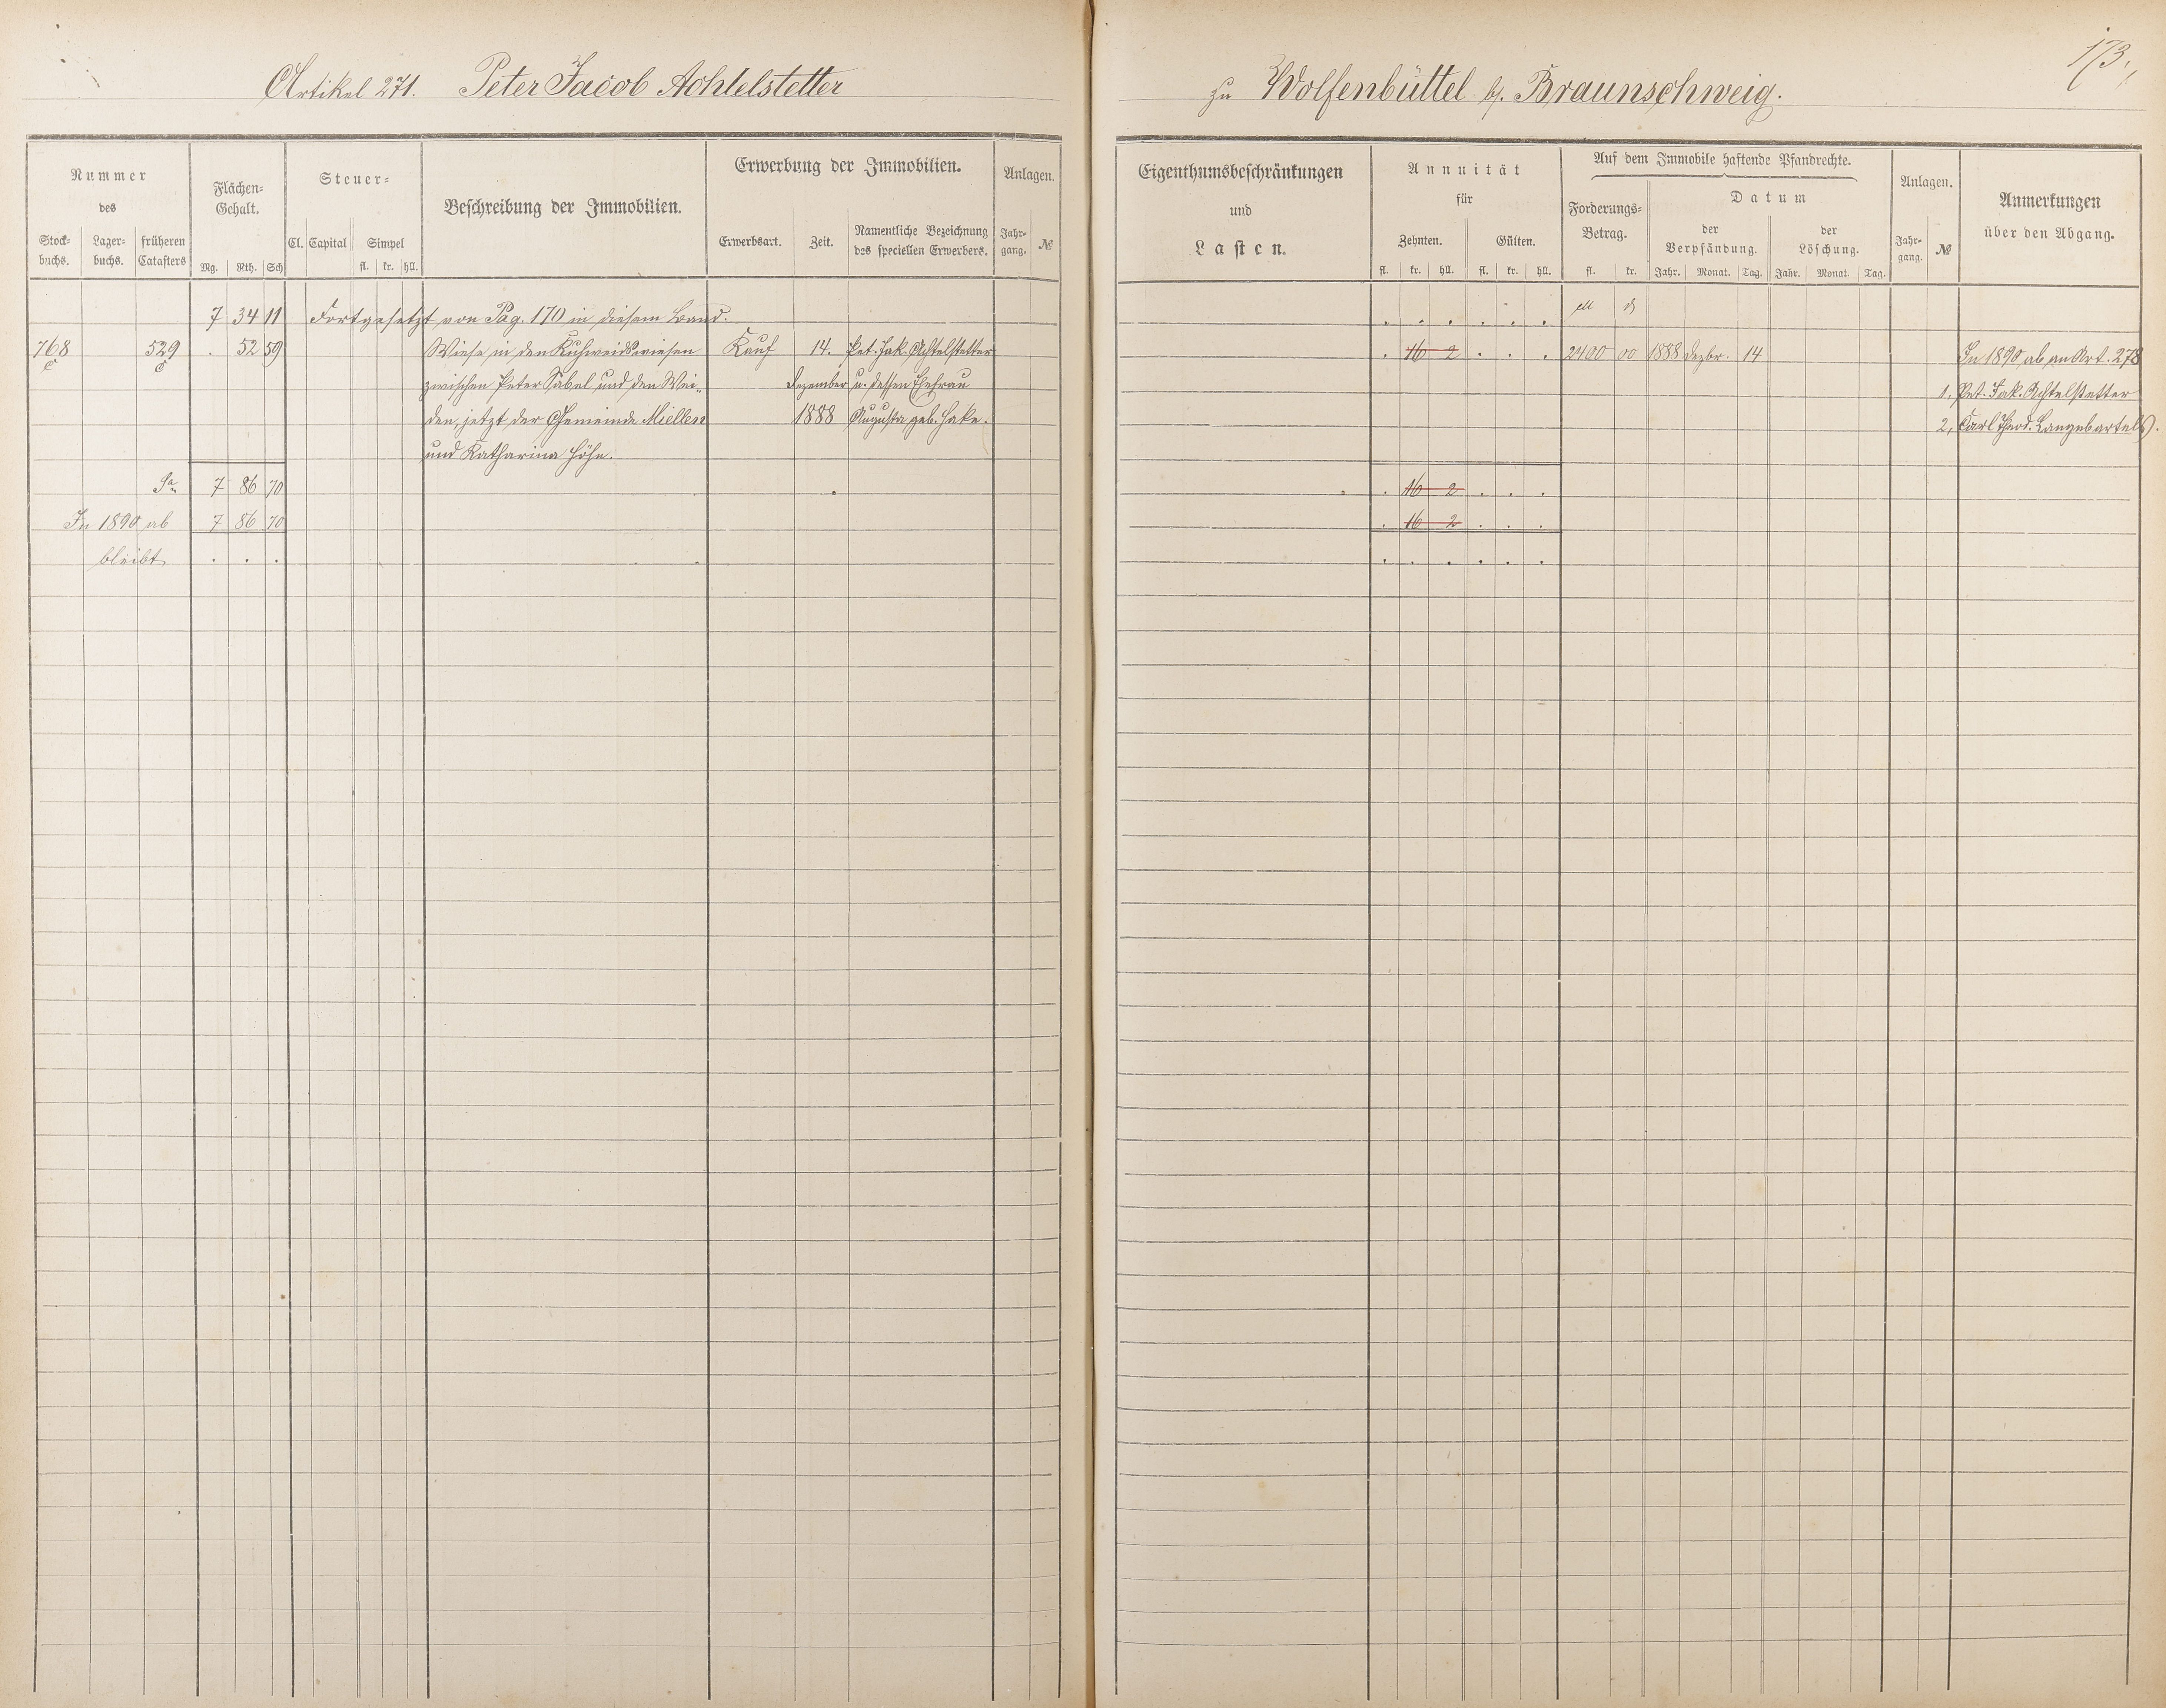 Artikel 271. Peter Jacob Achtelstetter
zu Wolfenbüttel b/. Braunschweig.
173.
Nummer
des
Stock-
buchs.
Lager-
buchs.
früheren
Catasters
Flächen-
Gehalt.
Mg. Rth. Sch
Steuer-
Cl. Capital Simpel
fl. kr. hll.
Beschreibung der Immobilien.
Erwerbung der Immobilien.
Erwerbsart. Zeit.
Namentliche Bezeichnung
des speciellen Erwerbers.
Anlagen.
Jahr-
gang. №
Eigenthumsbeschränkungen
und
Lasten.
Annuität
für
Zehnten. Gülten.
fl. kr. hll. fl. kr. hll.
Auf dem Immobile haftende Pfandrechte.
Forderungs-
Betrag.
fl. kr.
Datum
der
Verpfändung.
Jahr. Monat. Tag.
der
Löschung.
Jahr. Monat. Tag.
Anlagen.
Jahr-
gang. №
Anmerkungen
über den Abgang.
7 34 11 Fortgesetzt von Pag. 170 in diesem Band.
. . . . . . M
768 529 . 52 59 Wiese in den Kuhweidswiesen Kauf 14. Pet. Jak. Achtelstetter
c c zwischen Peter Sabel und den Wei- Dezember u. dessen Ehefrau
den, jetzt der Gemeinde Miellen 1888 Augusta geb. Hake.
und Katharina Höhn.
. 16 2 . . . 2400 00 1888 Dezbr. 14 In 1890 ab an Art. 278
1, Pet. Jak. Achtelstetter
2, Carl Theod. Langebartels.
Sa 7 86 70
. 16 2 . . .
In 1890 ab 7 86 70
. 16 2 . . .
bleibt . . .
. . . . . .